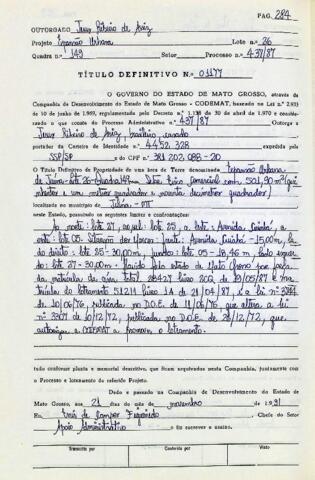 PAG. 284
OUTORGADO Jesus Ribeiro de
Projeto Expansão Urbana Lote n.º 26
Quadra n.º 149 Setor Processo n.º 437/87
TÍTULO DEFINITIVO N.º 01177
O GOVERNO DO ESTADO DE MATO GROSSO, através da
Companhia de Desenvolvimento do Estado de Mato Grosso - CODEMAT, baseado na Lei n.º 2.933
de 10 de junho de 1969, regulamentado pelo Decreto n.º 1.138 de 30 de abril de 1970 e conside-
rando o que consta do Processo Administrativo n.º 437/87 Outorga a
Jesus Ribeiro de brasileiro, casado
portador da Carteira de Identidade n.º 4.452.328 expedida pela
SSP/SP do CPF n.º 381.202.098-20
O Título Definitivo de Propriedade de uma área de Terra denominada Expansão Urbana
de Juína - Lote 26 - Quadra 149 comercial com 501,90 m² (qui
nhentos e um metros quadrados e noventa decímetros quadrados)
localizada no município de Juína - MT
neste Estado, possuindo os seguintes limites e confrontações:
Ao norte: lote 27, ao sul: lote 25, a leste: Avenida Cuiabá, a
oeste: lote 05. Frente: Avenida Cuiabá - 15,00m, la
do direito: lote 25 - 30,00m, fundos: lote 05 - 18,46 m, lado esquer
do: lote 27 - 30,00m - Havido pelo estado de Mato Grosso por força
da matrícula da área total 28427 livro 20Q de 19/05/87 e ma
trícula do loteamento 51211 livro 1A de 21/04/87, e a lei nº 3744
de 10/06/76, publicada no D.O.E. de 11/06/76 que altera a lei
nº 3307 de 10/12/72, publicada no D.O.E. de 28/12/72, que
autoriza a CODEMAT a promover o loteamento.
tudo conforme planta e memorial descritivo, que ficam arquivados nesta Companhia, juntamente com
o Processo e loteamento do referido Projeto.
Dado e passado na Companhia de Desenvolvimento do Estado de
Mato Grosso, aos 21 dias do mês de novembro de 1991
Eu, de Campos Figueiredo, Chefe do Setor
Apoio Administrativo o fiz escrever e assino.
Transcrito por Conferido por Visto